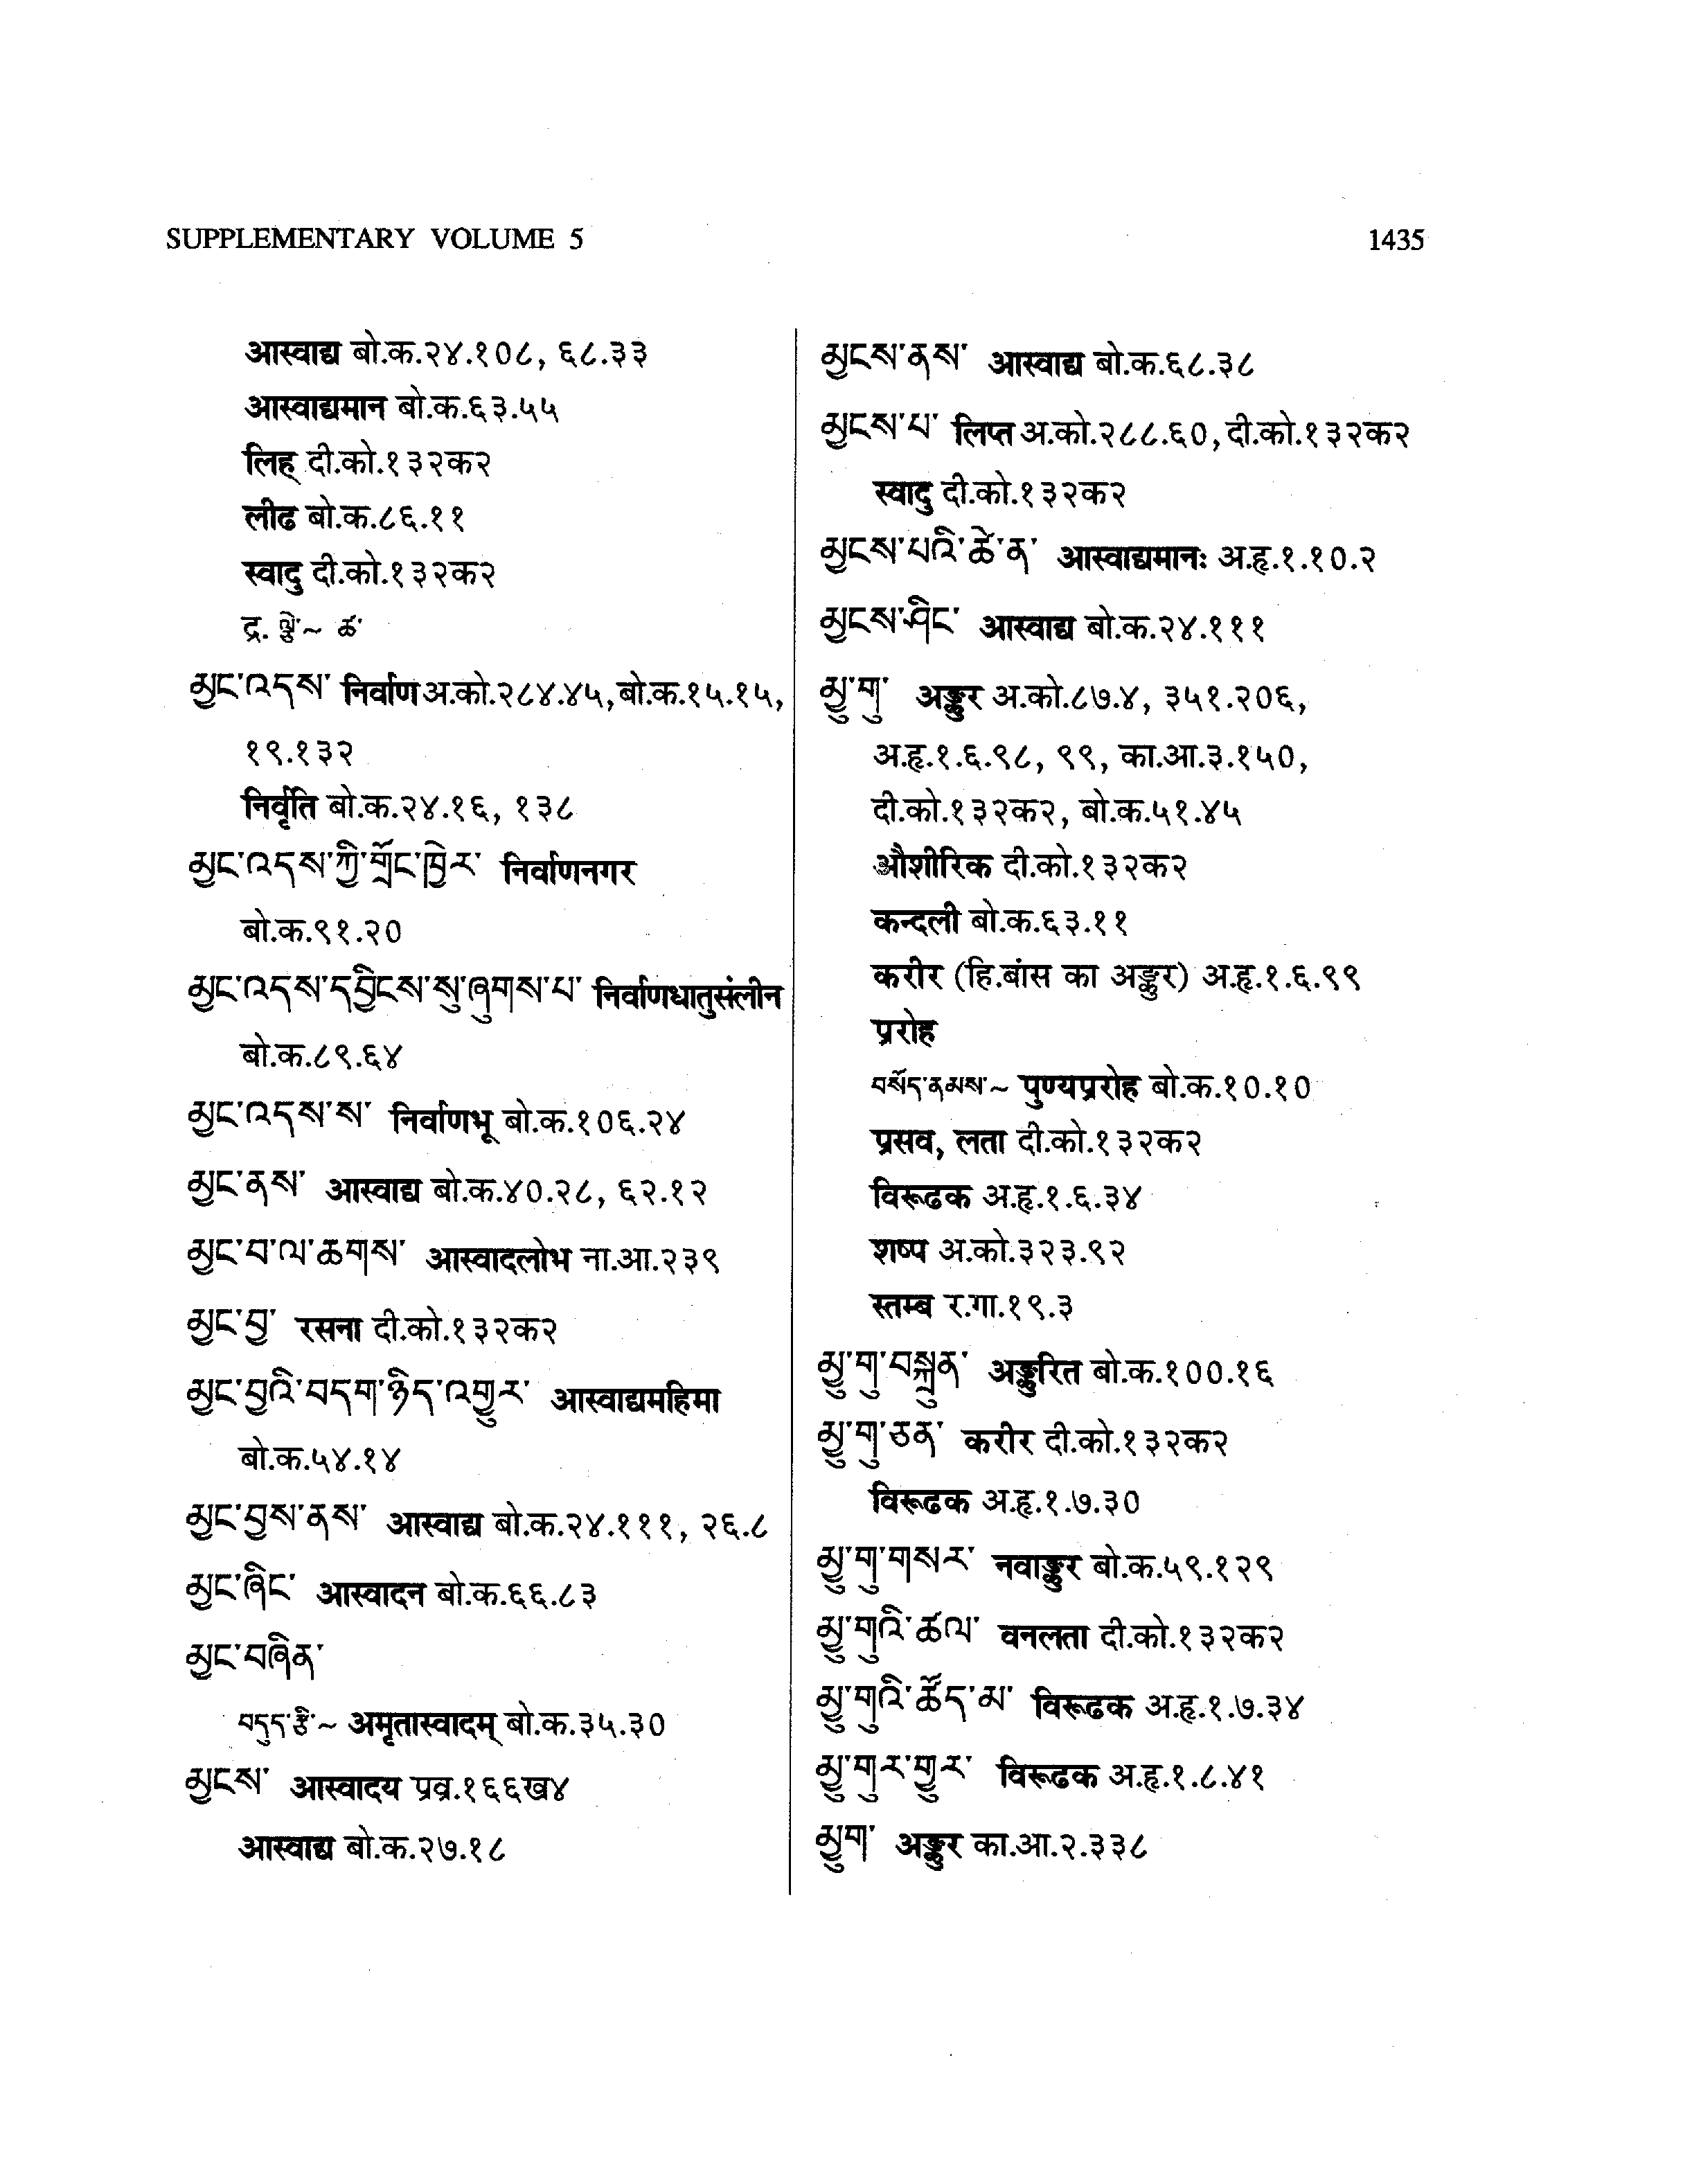 SUPPLEMENTARY VOLUME 5
1435
आस्वाद्य बो.क.२४.१०८, ६८.३३
आस्वाद्यमान बो.क.६३.५५
लिह् दी.को.१३२क२
लीढ बो.क.८६.११
स्वादु दी.को.१३२क२
द्र. ལྕེ་~ ཚ་
མྱང་འདས་ निर्वाण अ.को.२८४.४५, बो.क.१५.१५,
१९.१३२
निर्वृति बो.क.२४.१६, १३८
མྱང་འདས་ཀྱི་གྲོང་ཁྱེར་ निर्वाणनगर
बो.क.९१.२०
མྱང་འདས་དབྱིངས་སུ་ཞུགས་པ་ निर्वाणधातुसंलीन
बो.क.८९.६४
མྱང་འདས་ས་ निर्वाणभू बो.क.१०६.२४
མྱང་ནས་ आस्वाद्य बो.क.४०.२८, ६२.१२
མྱང་བ་ལ་ཆགས་ आस्वादलोभ ना.आ.२३९
མྱང་བྱ་ रसना दी.को.१३२क२
མྱང་བྱའི་བདག་ཉིད་འགྱུར་ आस्वाद्यमहिमा
बो.क.५४.१४
མྱང་བྱས་ནས་ आस्वाद्य बो.क.२४.१११, २६.८
མྱང་ཞིང་ आस्वादन बो.क.६६.८३
མྱང་བཞིན་
བདུད་རྩི་~ अमृतास्वादम् बो.क.३५.३०
མྱངས་ आस्वादय प्रव्र.१६६ख४
आस्वाद्य बो.क.२७.१८
མྱངས་ནས་ आस्वाद्य बो.क.६८.३८
མྱངས་པ་ लिप्त अ.को.२८८.६०, दी.को.१३२क२
स्वादु दी.को.१३२क२
མྱངས་པའི་ཚེ་ན་ आस्वाद्यमानः अ.हृ.१.१०.२
མྱངས་ཤིང་ आस्वाद्य बो.क.२४.१११
མྱུ་གུ་ अङ्कुर अ.को.८७.४, ३५१.२०६,
अ.हृ.१.६.९८, ९९, का.आ.३.१५०,
दी.को.१३२क२, बो.क.५१.४५
औशीरिक दी.को.१३२क२
कन्दली बो.क.६३.११
करीर (हि.बांस का अङ्कुर) अ.हृ.१.६.९९
प्ररोह
བསོད་ནམས་~ पुण्यप्ररोह बो.क.१०.१०
प्रसव, लता दी.को.१३२क२
विरूढक अ.हृ.१.६.३४
शष्प अ.को.३२३.९२
स्तम्ब र.गा.१९.३
མྱུ་གུ་བསྐྲུན་ अङ्कुरित बो.क.१००.१६
མྱུ་གུ་ཅན་ करीर दी.को.१३२क२
विरूढक अ.हृ.१.७.३०
མྱུ་གུ་གསར་ नवाङ्कुर बो.क.५९.१२९
མྱུ་གུའི་ཚལ་ वनलता दी.को.१३२क२
མྱུ་གུའི་ཚོད་མ་ विरूढक अ.हृ.१.७.३४
མྱུ་གུར་གྱུར་ विरूढक अ.हृ.१.८.४१
མྱུག་ अङ्कुर का.आ.२.३३८